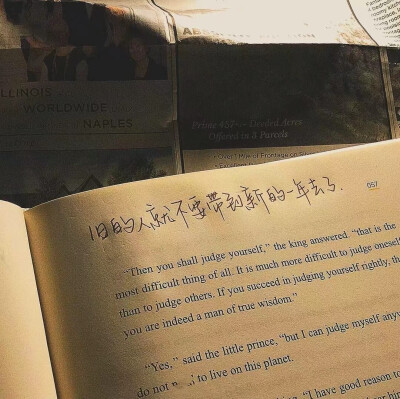 ILLINOIS
WORLDWIDE
NAPLES
Prime +57+- Deeded Acres
Offered in 3 Parcels
旧的人就不要带到新的一年去了.
057
"Then you shall judge yourself," the king answered. "that is the
most difficult thing of all. It is much more difficult to judge oneself
than to judge others. If you succeed in judging yourself rightly, th
you are indeed a man of true wisdom."
"Yes," said the little prince, "but I can judge myself anyw
do not to live on this planet.
"I have good reason to